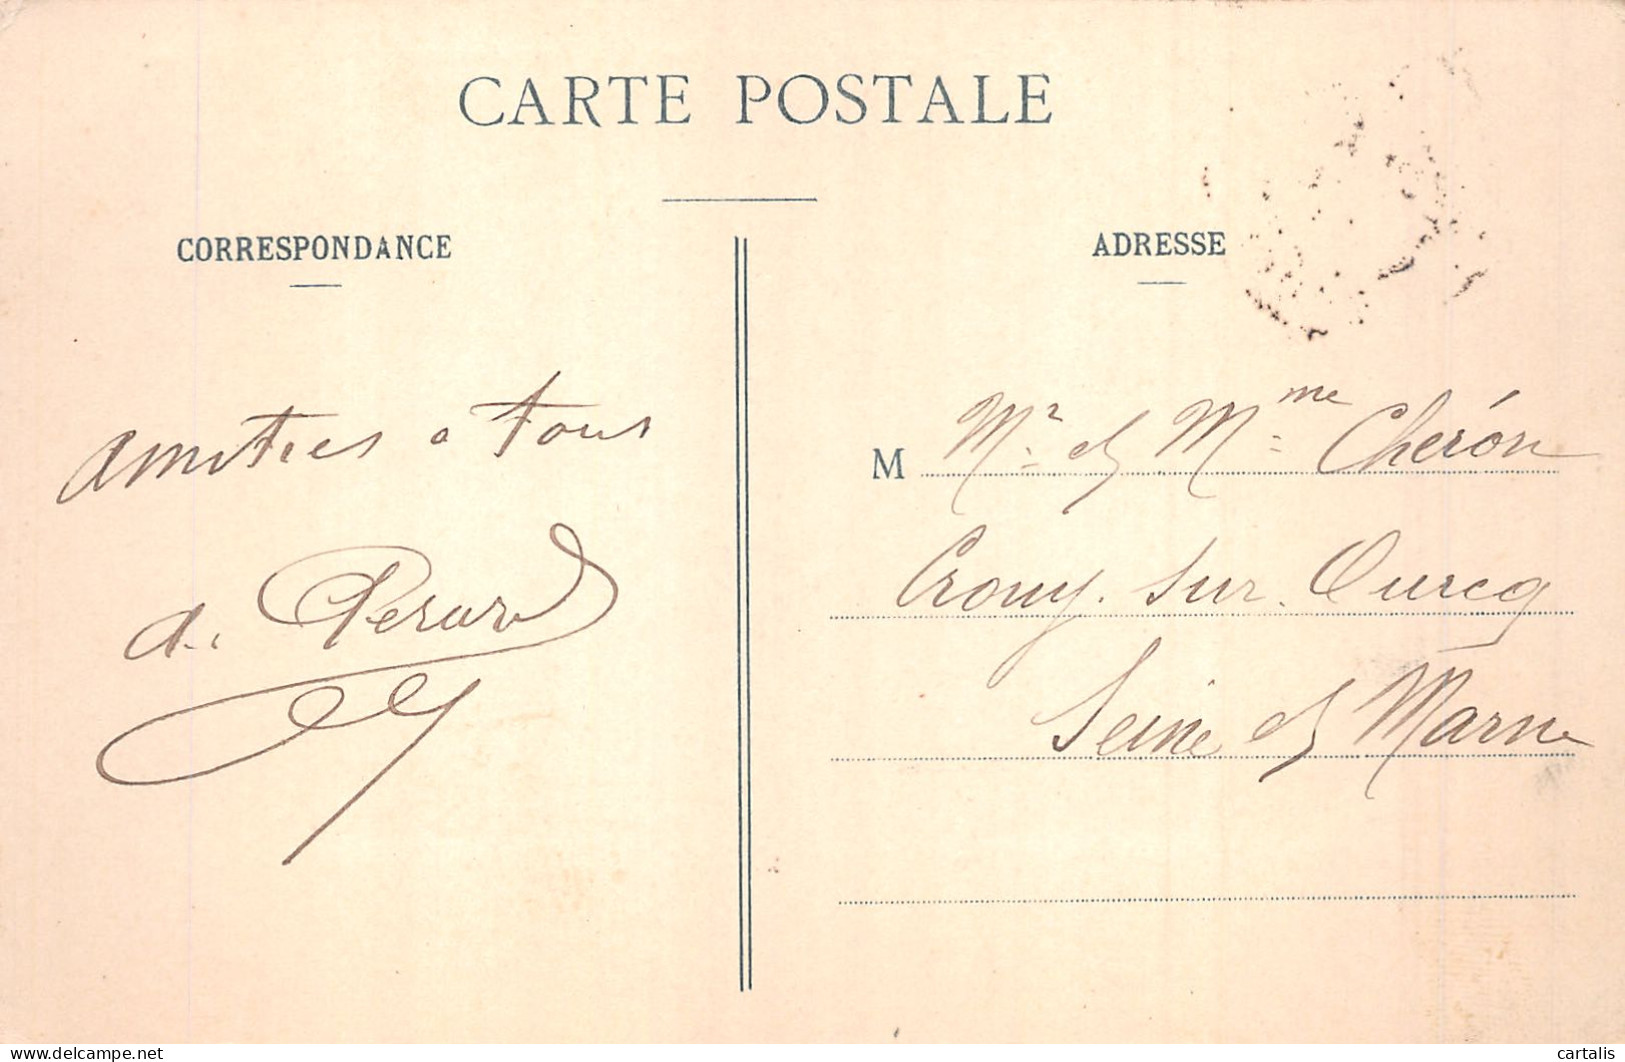 CARTE POSTALE
CORRESPONDANCE
ADRESSE
amitiés a tous
M Mr. et Mme Cherón
Crouy. sur. Ourcq
Seine et Marne
delcampe.net
cartalis